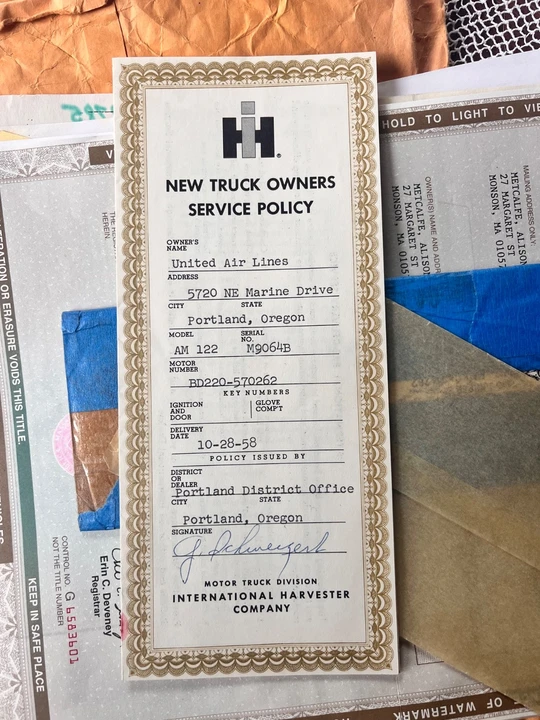 IH®
NEW TRUCK OWNERS
SERVICE POLICY
OWNER'S
NAME
United Air Lines
ADDRESS
5720 NE Marine Drive
CITY STATE
Portland, Oregon
MODEL SERIAL
NO.
AM 122 M9064B
MOTOR
NUMBER
BD220-570262
KEY NUMBERS
IGNITION
AND
DOOR
GLOVE
COMP'T
DELIVERY
DATE
10-28-58
POLICY ISSUED BY
DISTRICT
OR
DEALER
Portland District Office
CITY STATE
Portland, Oregon
SIGNATURE
G Schweigert
MOTOR TRUCK DIVISION
INTERNATIONAL HARVESTER
COMPANY
HOLD TO LIGHT TO VIE
MAILING ADDRESS ONLY:
METCALFE, ALISON
27 MARGARET ST
MONSON, MA 01057
OWNER(S) NAME AND ADDR
METCALFE, ALISON
27 MARGARET ST
MONSON, MA 0105
TERATION OR ERASURE VOIDS THIS TITLE.
KEEP IN SAFE PLACE
HEREIN.
CONTROL NO. G 6583601
NOT THE TITLE NUMBER
Erin C. Deveney
Registrar
OF WATERMARK